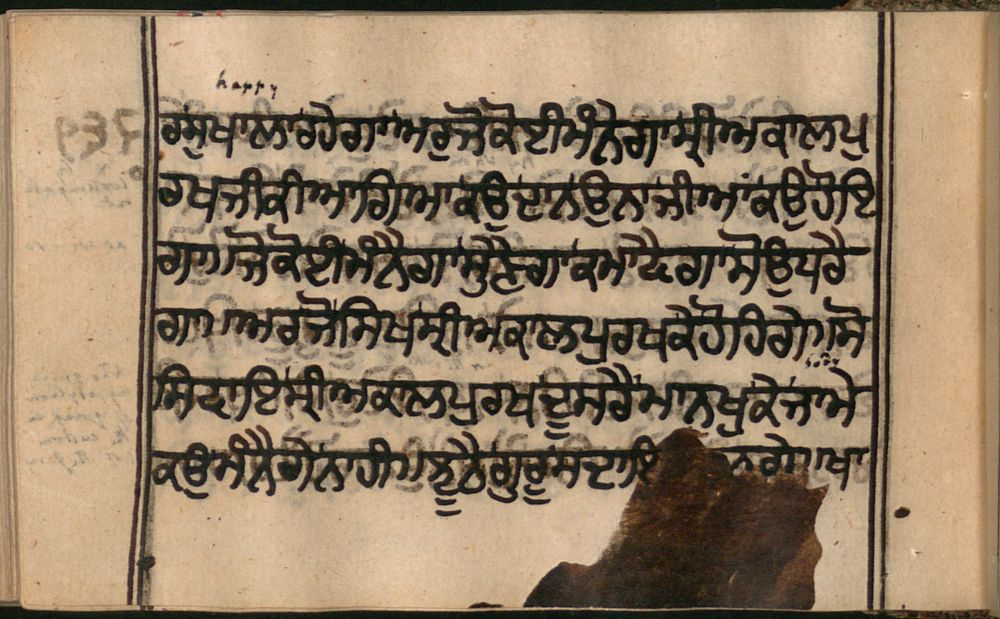 happy
ਰਸੁਖਾਲਾਰਹੇਗਾ॥ਅਰੁਜੋਕੋਈਮੰਨੇਗਾਸ੍ਰੀਅਕਾਲਪੁ
ਰਖਜੀਕੀਆਗਿਆਕਉਦਾਨਉਨਾਜੀਆਂਕਉਹੋਇ
ਗਾ॥ਜੋਕੋਈਮੰਨੈਗਾਸੁਣੈਗਾਕਮਾਵੈਗਾਸੋਉਧਰੈ
ਗਾ॥ਅਰਜੋਸਿਖਸ੍ਰੀਅਕਾਲਪੁਰਖਕੈਹੋਹਿਗੇ॥ਸੋ
body
ਸਿਵਾਇਸ੍ਰੀਅਕਾਲਪੁਰਖਦੂਸਰੈਮਾਨਖੁਕੋਜਾਮੇ
ਕਉਮੰਨੈਗੇਨਾਹੀ॥ ਗੁਰੂਸਦਾਇ ਨਗੇ॥ਖਾ